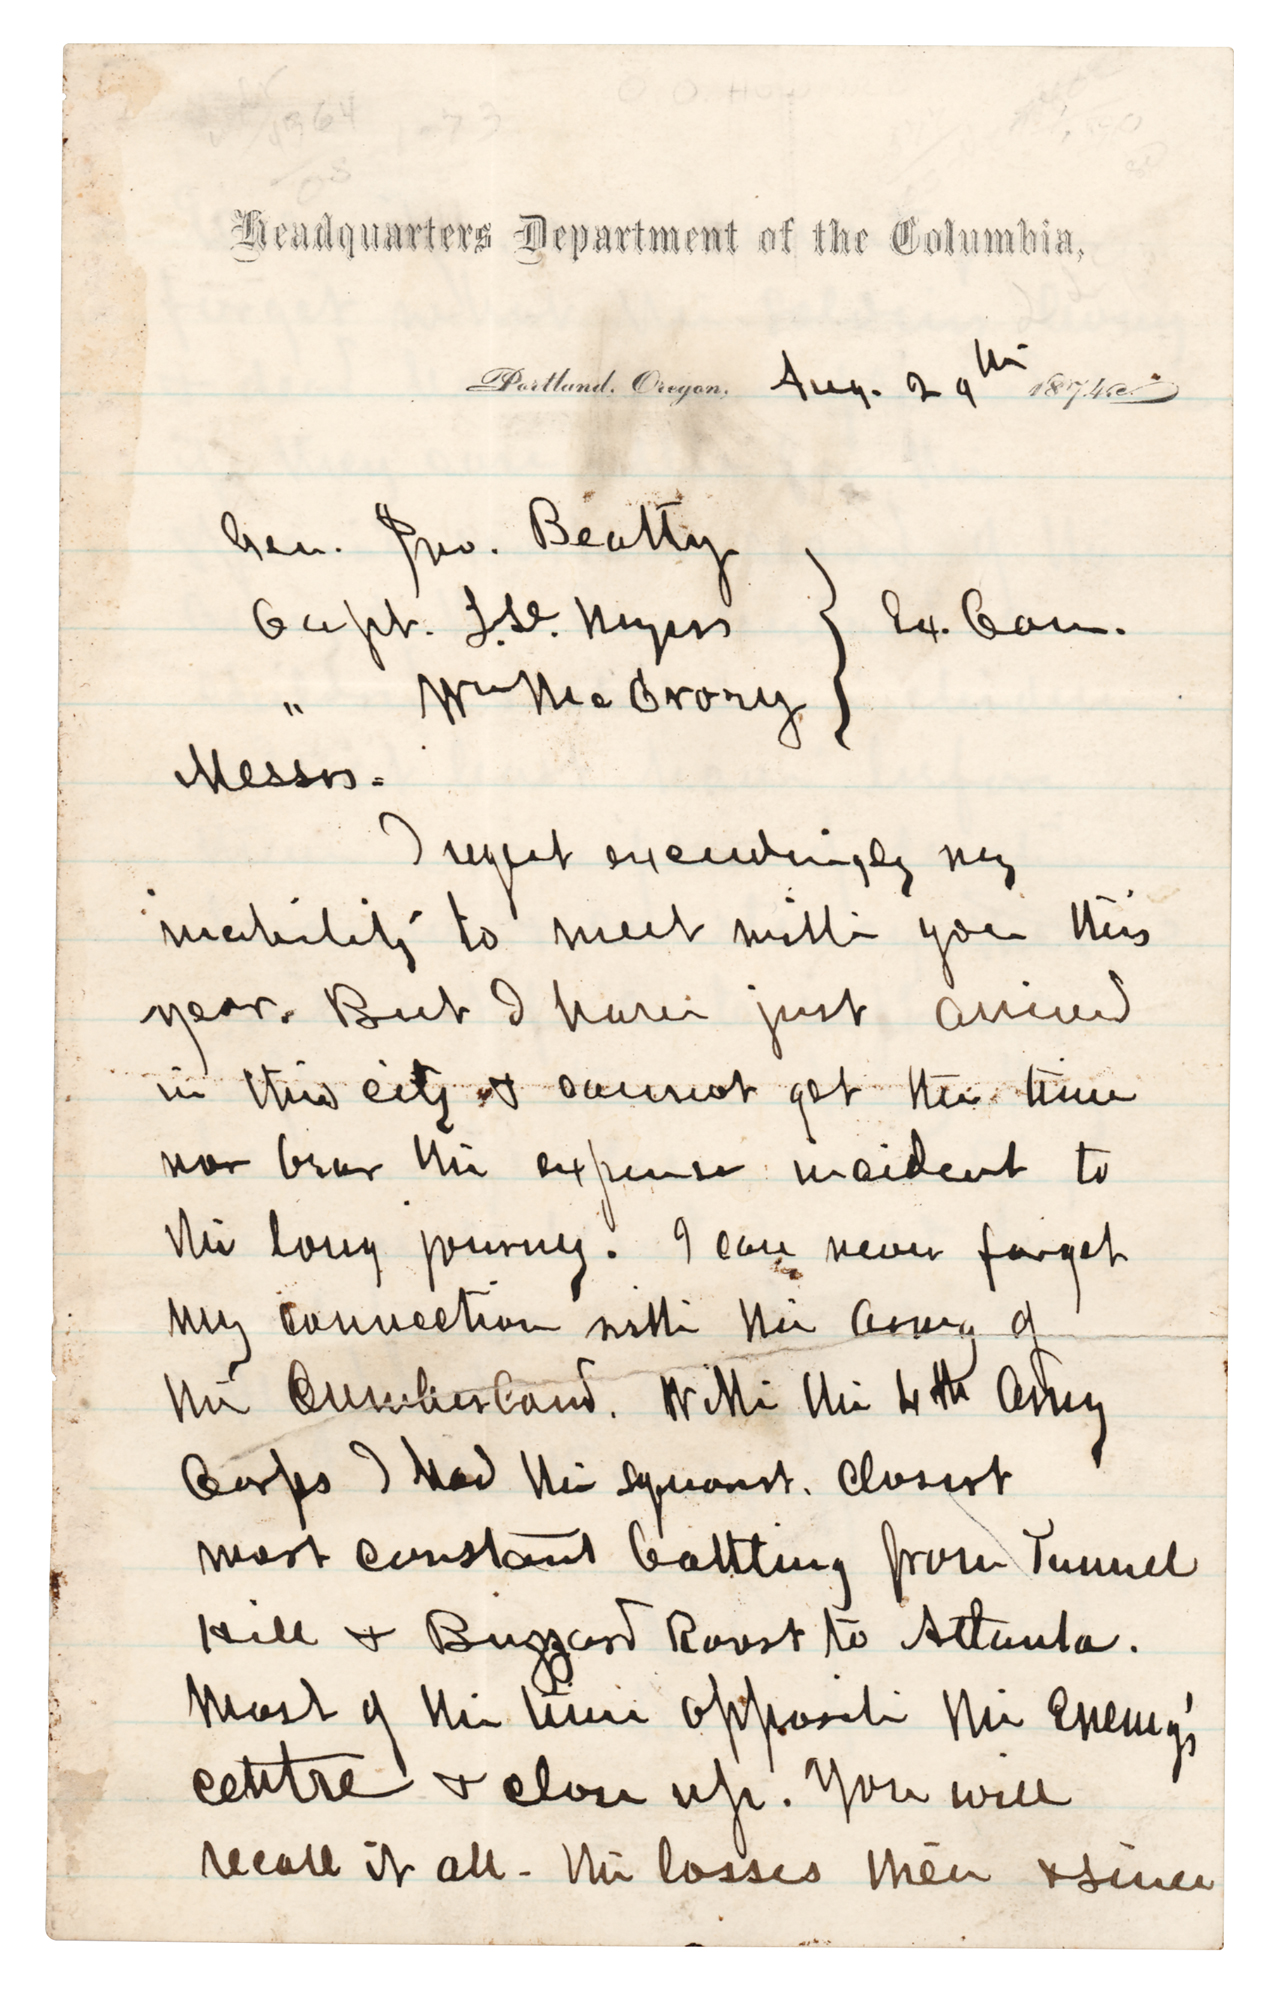 O. O. HOW
1964
Headquarters Department of the Columbia,
Portland, Oregon, Aug. 29th 1874
Gen. Jno. Beatty
Capt. Myers } Ex. Com.
" Wm McCrory
Messrs.
I regret exceedingly my
inability to meet with you this
year. But I have just arrived
in this city & cannot get the time
nor bear the expense incident to
the long journey. I can never forget
my connection with the Army of
the Cumberland. With the 4th Army
Corps I had the squarest, closest
most constant battling from Tunnel
Hill & Buzzard Roost to Atlanta.
Most of the time opposite the Enemy's
centre & close up. You will
recall it all - the losses then & since